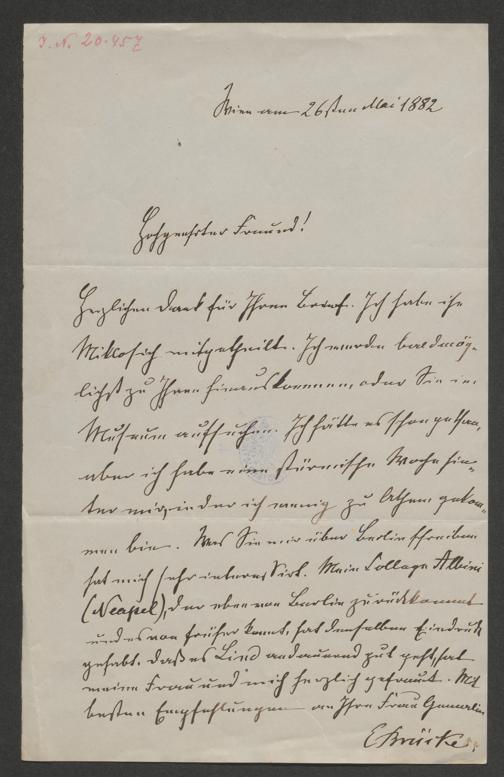 I. N. 20.457
Wien am 26sten Mai 1882
Hochgeehrter Freund!
Herzlichen Dank für Ihren Brief. Ich habe ihn
Miklosich mitgetheilt. Ich werde baldmög-
lichst zu Ihnen hinauskommen, oder Sie im
Museum aufsuchen. Ich hätte es schon gethan,
aber ich habe eine stürmische Woche hin-
ter mir, in der ich wenig zu Athem gekom-
men bin. Was Sie mir über Berlin schreiben
hat mich sehr interessirt. Mein College Albini
(Neapel), der eben von Berlin zurückkommt
und es von früher kennt, hat denselben Eindruck
gehabt. Daß es Lind andauernd gut geht, hat
meine Frau und mich herzlich gefreut. Mit
besten Empfehlungen an Ihre Frau Gemahlin
E Brücke